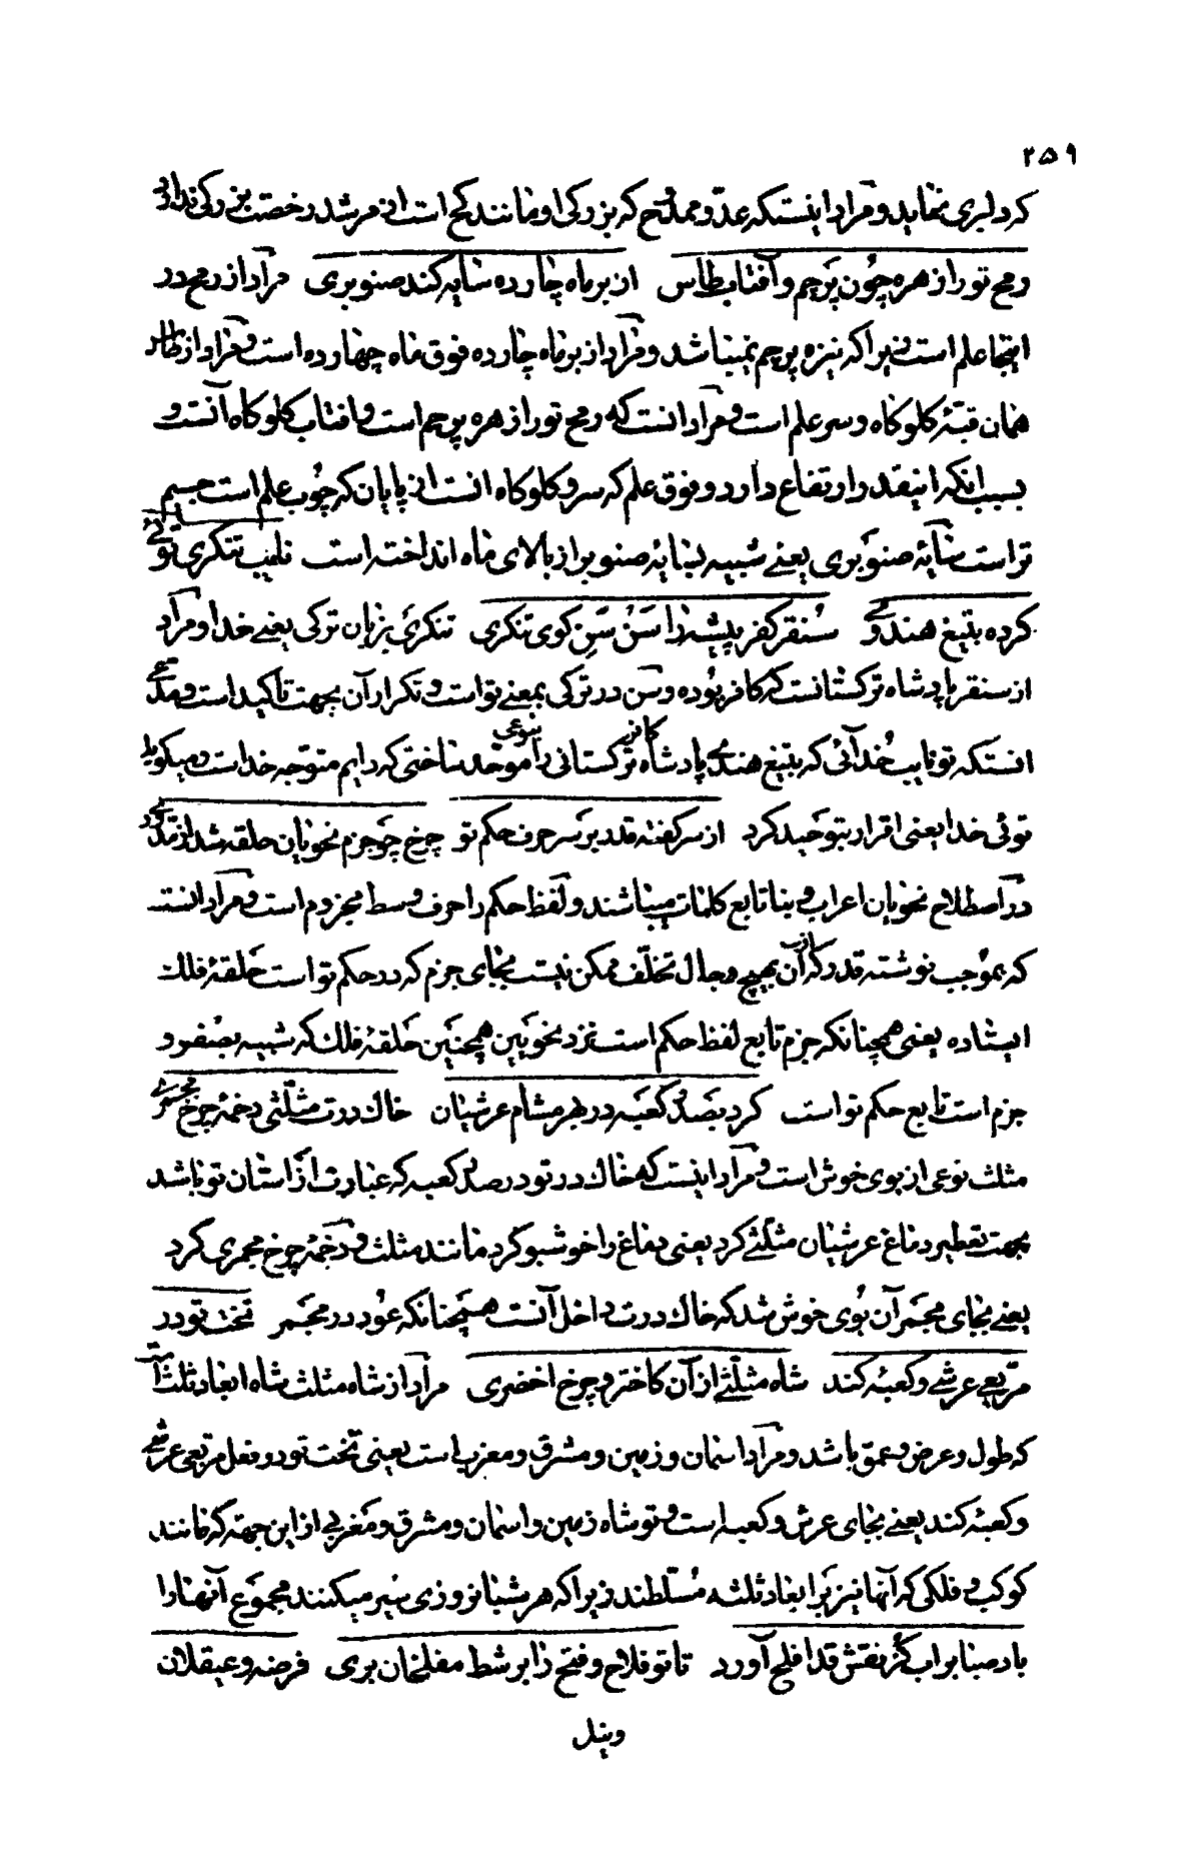 ۲۵۹
که دلیری نماید و مراد اینستکه عدو ممدوح که بزرکی او مانند کخ است از مرشد رخصت بزرکی ندارد
رمح تو را زهره چون پرچم و آفتاب طاس از بر ماه چارده سایه کند صنوبری مراد از رمح در
اینجا علم است زیرا که نیزه پرچم نمیباشد و مراد از بر ماه چارده فوق ماه چهارده است و مراد از طاس
همان قبّهٔ کلوکاه و سر علم است و مراد انست که رمح تو را زهره پرچم است و افتاب کلوکاه آنست و
بسبب انکه اینقدر ارتفاع دارد و فوق علم که سر و کلوکاه انست از پایان که چوب علم است جسم
تر است سایهٔ صنوبری یعنی شبیه بسایهٔ صنوبر از بالای ماه انداخته است نایب تنکری توئی
کرده بتیغ هندوی سنقر کفر پیشه را سن سن کوی تنکری تنکری بزبان ترکی یعنی خدا و مراد
از سنقر پادشاه ترکستانست که کافر بوده و سن در ترکی بمعنی تو است و تکرار آن بجهت تاکید است و مدعی
انستکه تو نایب خدائی که بتیغ هندی پادشاه کافر ترکستانی را بنوعی موحد ساختی که دایم متوجه خداست و میکوید
توئی خدا یعنی اقرار بتوحید کرد از سر کفته قدر بر سر حرف حکم تو چرخ چو جزم نحویان حلقه شد از مدوری
در اصطلاح نحویان اعراب و بنا تابع کلمات میباشند و لفظ حکم را حرف وسط مجزوم است و مراد انست
که بموجب نوشته قدر که از آن بهیچ وجال تخلّف ممکن نیست بجای جزم که در حکم تو است حلقهٔ فلک
ایستاده یعنی همچنانکه جزم تابع لفظ حکم است نزد نحویین همچنین حلقهٔ فلک که شبیه بصفر و
جزم است تابع حکم تو است کرد بصدر کعبه در بهر مشام عرشیان خاک درت مثلّثی دخمهٔ چرخ مجمری
مثلث نوعی از بوی خوش است و مراد اینست که خاک در تو در صدر کعبه که عبارت از آستان تو باشد
بجهت تعطیر دماغ عرشیان مثلّثی کرد یعنی دماغ را خوشبو کرد مانند مثلث و دخمهٔ چرخ مجمری کرد
یعنی بجای مجمر آن بوی خوش شد که خاک درت داخل آنست همچنانکه عود در مجمر تخت تو در
مربعی عرشی و کعبهٔ کند شاه مثلّثی از آن کاختر و چرخ اخضری مراد از شاه مثلث شاه ابعاد ثلثه است
که طول و عرض و عمق باشد و مراد اسمان و زمین و مشرق و مغرب است یعنی تخت تو در فعل مربعی عرشی
و کعبهٔ کند یعنی بجای عرش و کعبه است و تو شاه زمین و اسمان و مشرق و مغربی از این جهة که مانند
کوکب و فلکی که آنها نیز بر ابعاد ثلثه مسلطند زیرا که هر شبانروزی سیر میکنند مجموع آنها را
باد صبا بر اب کر نقش قد افلح آورد تا تو فلاح و فتح را بر شط مفلحان بری فرضه و عسقلان
و نیل